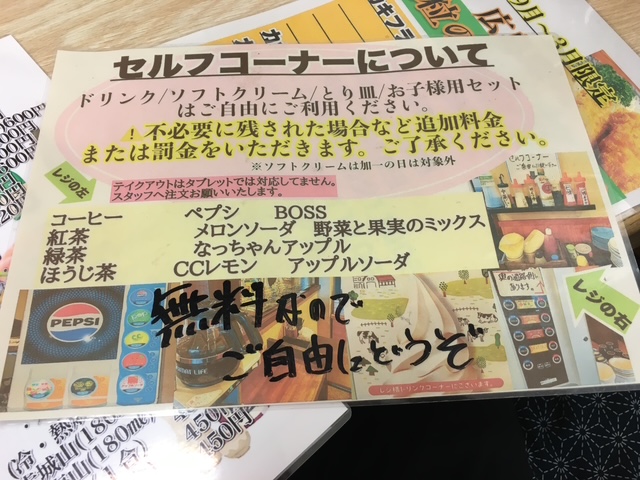 セルフコーナーについて
ドリンク/ソフトクリーム/とり皿/お子様用セット
はご自由にご利用ください。
！不必要に残された場合など追加料金
または罰金をいただきます。ご了承ください。
※ソフトクリームは加一の日は対象外
レジの左
テイクアウトはタブレットでは対応してません。
スタッフへ注文お願いいたします。
コーヒー ペプシ BOSS
紅茶 メロンソーダ 野菜と果実のミックス
緑茶 なっちゃんアップル
ほうじ茶 CCレモン アップルソーダ
レジの右
PEPSI
無料なので
ご自由にどうぞ
レジ横ドリンクコーナーにございます。
月限定
450円